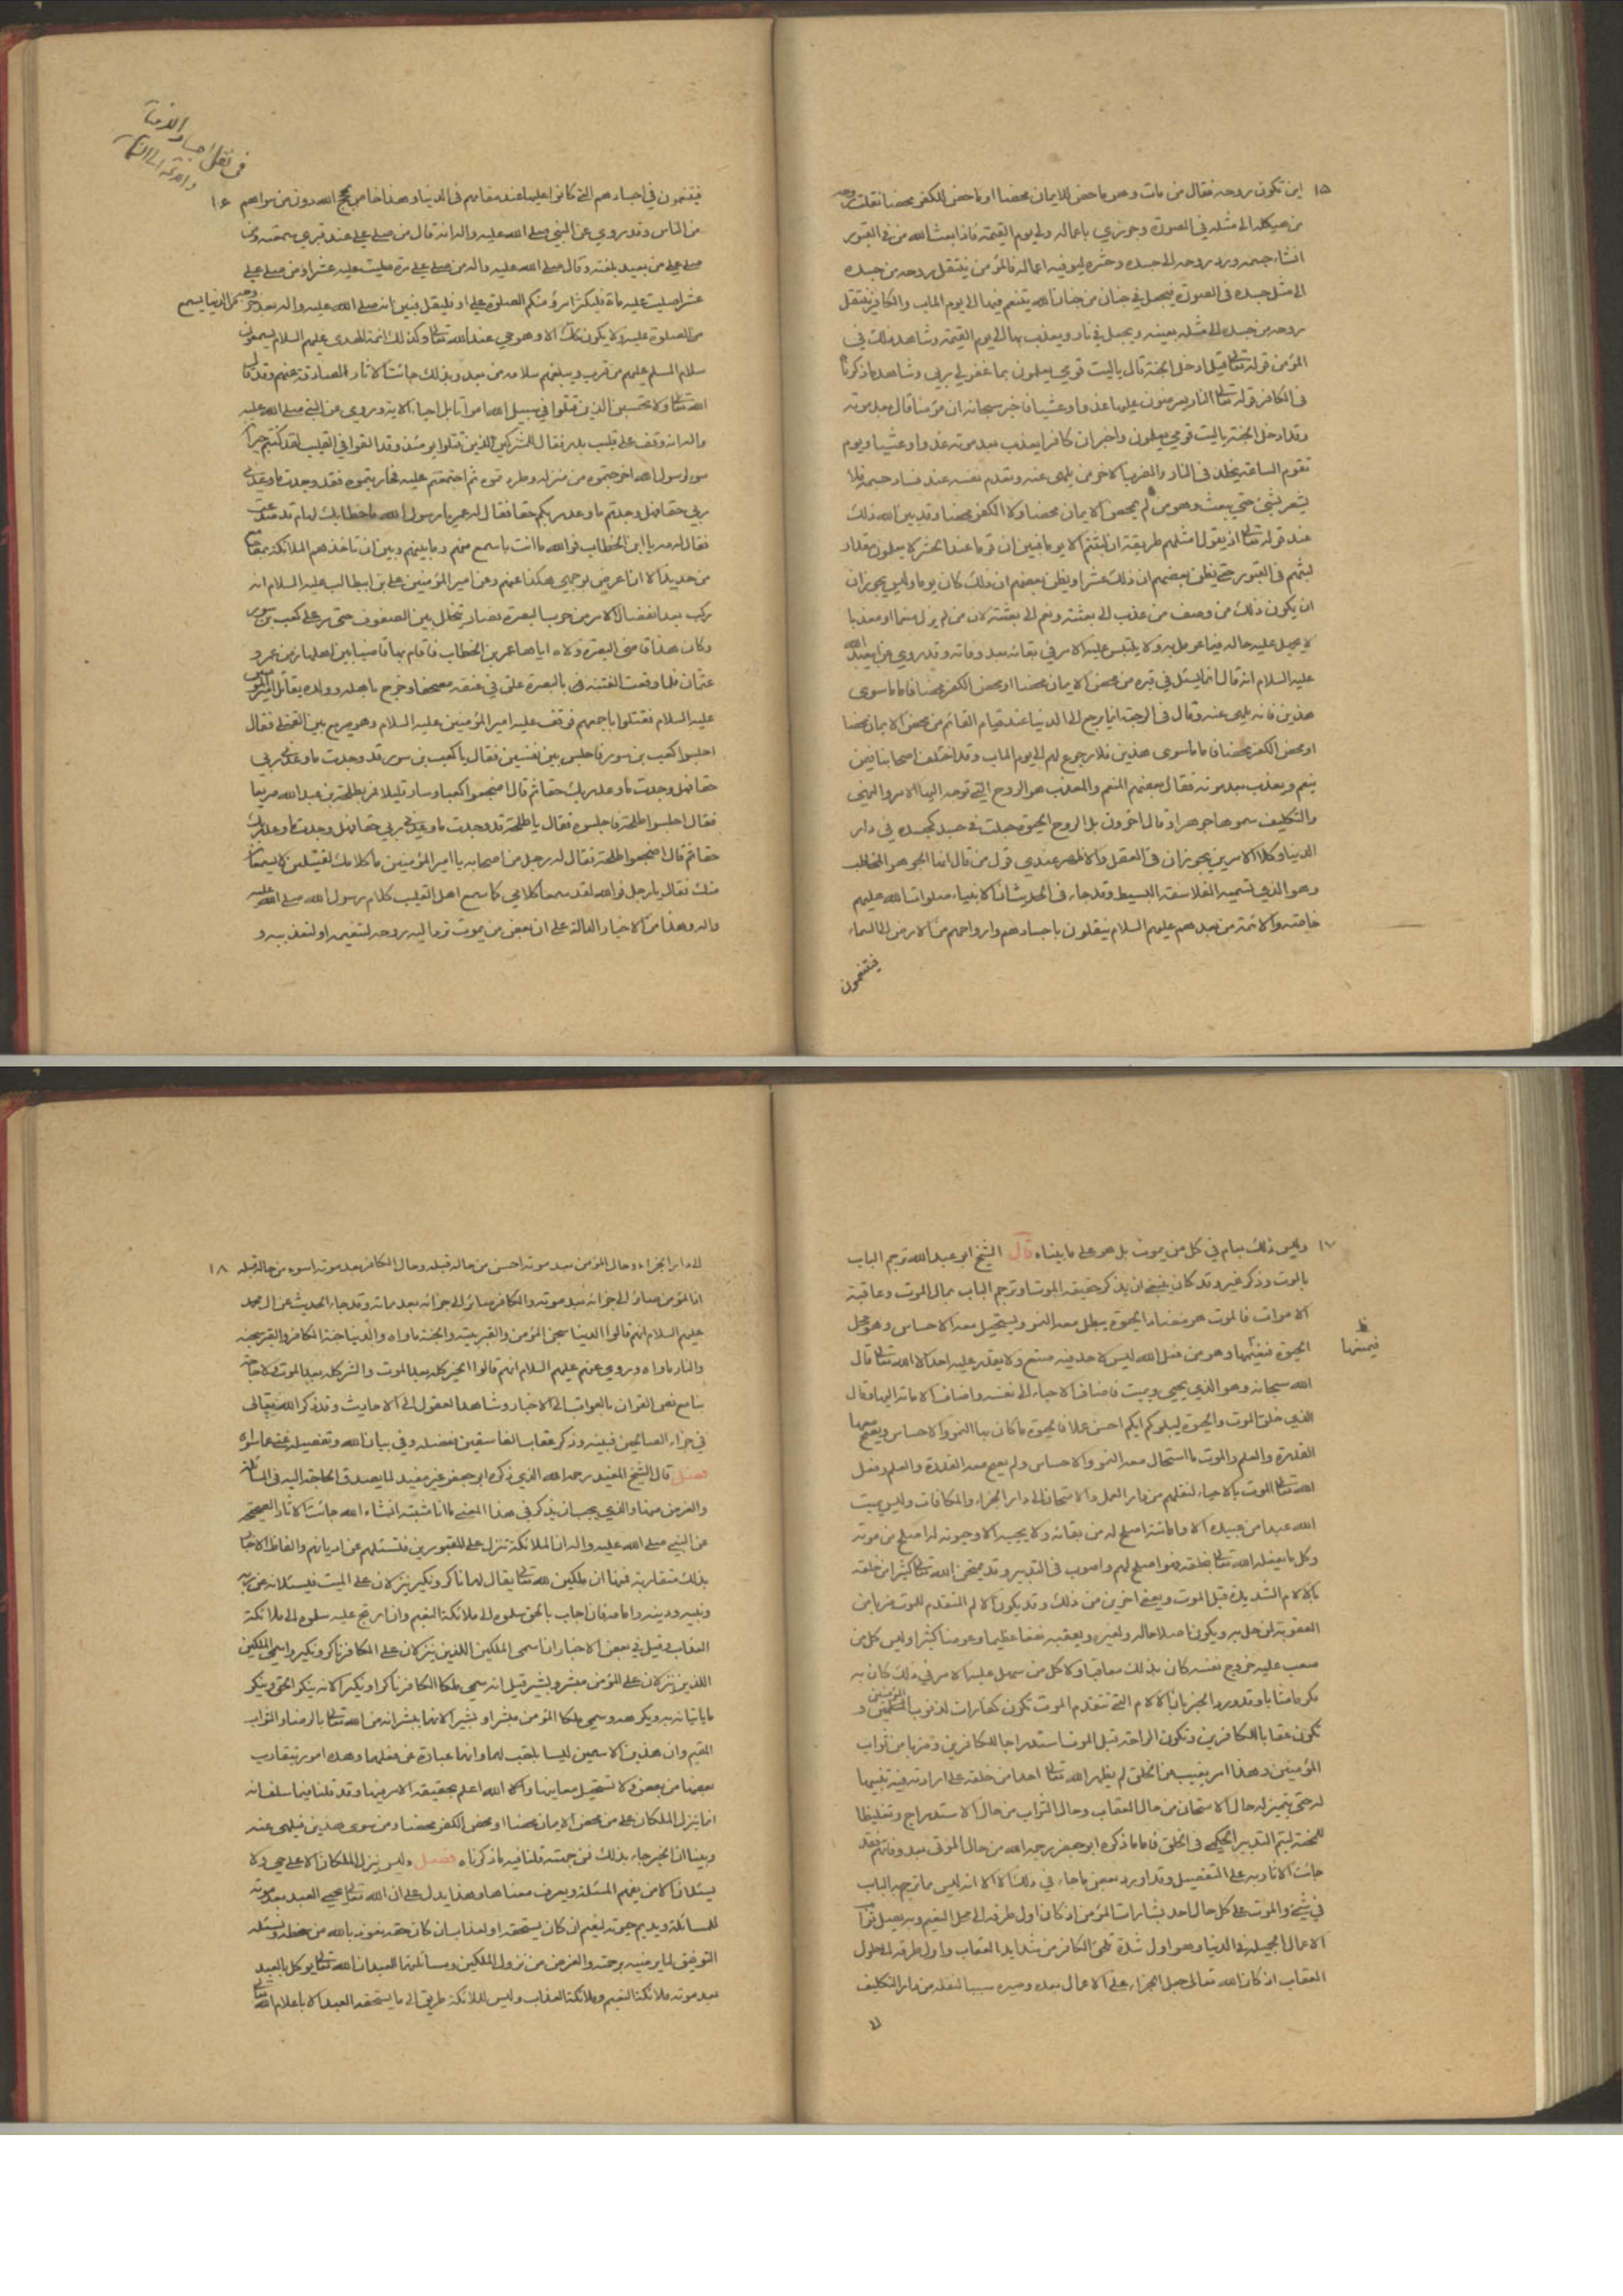 ١٥
اين تكون روحه فقال من مات وهو ماحض للايمان محضا او ماحض للكفر محضا نقلت روحه
من هيكله الى مثله في الصورة وجوزي باعماله الى يوم القيمة فاذا بعث الله من في القبور
انشاء جسمه ورد روحه الى جسده وحشره ليوفيه اعماله فالمؤمن ينتقل روحه من جسده
الى مثل جسده في الصورة فيجعل في جنان من جنان الله يتنعم فيها الى يوم الماب والكافر ينتقل
روحه من جسده الى مثله بعينه ويجعل في نار ويعذب بها الى يوم القيمة وشاهد ذلك في
المؤمن قوله تعالى قيل ادخل الجنة قال ياليت قومي يعلمون بما غفر لي ربي وشاهد ما ذكرناه
في الكافر قوله تعالى النار يعرضون عليها غدوا وعشيا فاخبر سبحانه ان مؤمنا قال بعد موته
وقد ادخل الجنة ياليت قومي يعلمون واخبر ان كافرا يعذب بعد موته غدوا وعشيا ويوم
تقوم الساعة يخلد في النار والضرب الاخر من يلهى عنه وتعدم نفسه عند فساد جسمه فلا
يشعر بشئ حتى يبعث وهو من لم يمحض الايمان محضا ولا الكفر محضا وقد بين الله ذلك
عند قوله تعالى اذ يقول امثلهم طريقة ان لبثتم الا يوما فبين ان قوما عند الحشر لا يعلمون مقدار
لبثهم في القبور حتى يظن بعضهم ان ذلك عشرا ويظن بعضهم ان ذلك كان يوما وليس يجوز ان
ان يكون ذلك من وصف من عذب الى بعثته ونعم الى بعثته لان من لم يزل منعما او معذبا
لا يجهل عليه حاله فيما عومل به ولا يلتبس عليه الامر في بقائه بعد وفاته وقد روي عن ابي عبد الله
عليه السلام انه قال انما يسئل في قبره من محض الايمان محضا او محض الكفر محضا فاما ما سوى
هذين فانه يلهى عنه وقال في الرجعة انما يرجع الى الدنيا عند قيام القائم من محض الايمان محضا
او محض الكفر محضا فاما ما سوى هذين فلا رجوع لهم الى يوم الماب وقد اختلف اصحابنا فيمن
ينعم ويعذب بعد موته فقال بعضهم المنعم والمعذب هو الروح التي توجه اليها الامر والنهي
والتكليف سموها جوهرا وقال اخرون بل الروح الحيوة جعلت في جسد كجسده في دار
الدنيا وكلا الامرين يجوزان في العقل والاظهر عندي قول من قال انها الجوهر المخاطب
وهو الذي تسميه الفلاسفة البسيط وقد جاء في الحديث ان الانبياء صلوات الله عليهم
خاصته والائمة من بعدهم عليهم السلام ينقلون باجسادهم وارواحهم من الارض الى السماء
فيتنعمون
١٦
فيتنعمون في اجسادهم التي كانوا عليها عند مقامهم في الدنيا وهذا خاص بحجج الله دون من سواهم
من الناس وقد روي عن النبي صلى الله عليه واله انه قال من صلى علي عند قبري سمعته ومن
صلى علي من بعيد بلغته وقال صلى الله عليه واله من صلى علي مرة صليت عليه عشرا ومن صلى علي
عشرا صليت عليه مأة فليكثر امرؤ منكم الصلوة علي او فليقل فبين انه صلى الله عليه واله بعد خروجه من الدنيا يسمع
من الصلوة عليه ولا يكون ذلك الا وهو حي عند الله تعالى وكذلك ائمة الهدى عليهم السلام يسمعون
سلام المسلم عليهم من قرب ويبلغهم سلامه من بعد وبذلك جائت الاثار الصادقة عنهم وقد قال
الله تعالى ولا تحسبن الذين قتلوا في سبيل الله امواتا بل احياء الاية وروي عن النبي صلى الله عليه
واله انه وقف على قليب بدر فقال للمشركين الذين قتلوا يومئذ وقد القوا في القليب لقد كنتم جيران
سوء لرسول الله اخرجتموه من منزله وطردتموه ثم اجتمعتم عليه فحاربتموه فقد وجدت ما وعدني
ربي حقا فهل وجدتم ما وعد ربكم حقا فقال له عمر يا رسول الله ما خطابك لهام قد صديت
فقال له مه يا ابن الخطاب فوالله ما انت باسمع منهم وما بينهم وبين ان تاخذهم الملائكة بمقامع
من حديد الا ان اعرض بوجهي هكذا عنهم وعن امير المؤمنين علي بن ابيطالب عليه السلام انه
ركب بعد انفصال الامر من حرب البصرة فصار يتخلل بين الصفوف حتى مر على كعب بن سور
وكان هذا قاضي البصرة ولاه اياها عمر بن الخطاب فاقام بها قاضيا بين اهلها زمن عمر و
عثمان فلما وقعت الفتنة بالبصرة علق في عنقه مصحفا وخرج باهله وولده يقاتل امير المؤمنين
عليه السلام فقتلوا باجمعهم فوقف عليه امير المؤمنين عليه السلام وهو صريع بين القتلى فقال
اجلسوا كعب بن سور فاجلس بين نفسين فقال يا كعب بن سور قد وجدت ما وعدني ربي
حقا فهل وجدت ما وعدك ربك حقا ثم قال اضجعوا كعبا وسار قليلا فمر بطلحة بن عبد الله صريعا
فقال اجلسوا طلحة فاجلسوه فقال يا طلحة قد وجدت ما وعدني ربي حقا فهل وجدت ما وعدك ربك
حقا ثم قال اضجعوا طلحة فقال له رجل من اصحابه يا امير المؤمنين ما كلامك لقتيلين لا يسمعان
منك فقال يا رجل فوالله لقد سمعا كلامي كما سمع اهل القليب كلام رسول الله صلى الله عليه
واله وهذا من الاخبار الدالة على ان بعض من يموت ترد اليه روحه لتنعيمه او لتعذيبه و
١٧
وليس ذلك بعام في كل من يموت بل هو على ما بيناه قال الشيخ ابو عبد الله ترجم الباب
بالموت وذكر غيره وقد كان ينبغي ان يذكر حقيقة الموت او ترجم الباب بمال الموت وعاقبة
الاموات فالموت هو مضاد الحيوة يبطل معه النمو ويستحيل معه الاحساس وهو محل
الحيوة فينفيها وهو من فعل الله ليس لاحد فيه صنع ولا يقدر عليه احد الا الله تعالى قال
الله سبحانه وهو الذي يحيي ويميت فاضاف الاحياء الى نفسه واضاف الاماتة اليها وقال
الذي خلق الموت والحيوة ليبلوكم ايكم احسن عملا فالحيوة ما كان بها النمو والاحساس ويصح معها
القدرة والعلم والموت ما استحال معه النمو والاحساس ولم يصح معه القدرة والعلم وفعل
الله تعالى الموت بالاحياء لنقلهم من دار العمل والامتحان الى دار الجزاء والمكافات وليس يميت
الله عبدا من عبيده الا واماتته اصلح له من بقائه ولا يحييه الا وحيوته له اصلح من موته
وكل ما يفعله الله تعالى بخلقه فهو اصلح لهم واصوب في التدبير وقد يمتحن الله تعالى كثيرا من خلقه
بالالام الشديدة قبل الموت ويعفي اخرين من ذلك وقد يكون الالم المتقدم للموت ضربا من
العقوبة لمن حل به ويكون استصلاحا له ولغيره ويعقبه نفعا عظيما وعوضا كثيرا وليس كل من
صعب عليه خروج نفسه كان بذلك معاقبا ولا كل من سهل عليه الامر في ذلك كان به
مكرما مثابا وقد ورد الخبر بان الالام التي تتقدم الموت تكون كفارات لذنوب المؤمنين و
تكون عقابا للكافرين وتكون الراحة قبل الموت استدراجا للكافرين وضربا من ثواب
المؤمنين وهذا امر مغيب عن الخلق لم يظهر الله تعالى احدا من خلقه على ارادته فيه تنبيها
له حتى يتميز له حال الامتحان من حال العقاب وحال الثواب من حال الاستدراج وتغليظا
للمحنة ليتم التدبير الحكمي في الخلق فاما ما ذكره ابو جعفر رحمه الله من حال الموتى بعد وفاتهم فقد
جائت الاثار به على التفصيل وقد اورد بعض ما جاء في ذلك الا انه ليس مما ترجم به الباب
في شئ والموت على كل حال احد بشارات المؤمن اذ كان اول طرقه الى محل النعيم وبه يصل ثواب
الاعمال الجميلة في الدنيا وهو اول شدة تلحق الكافر من شدايد العقاب واول طرقه الى حلول
العقاب اذ كان الله تعالى جعل الجزاء على الاعمال بعده وصيره سببا لنقله من دار التكليف
١٨
الى دار الجزاء وحال المؤمن بعد موته احسن من حاله قبله وحال الكافر بعد موته اسوء من حاله قبله
اذ المؤمن صائر الى جزائه بعد موته والكافر صائر الى جزائه بعد مماته وقد جاء الحديث عن ال محمد
عليهم السلام انهم قالوا الدنيا سجن المؤمن والقبر بيته والجنة ماواه والدنيا جنة الكافر والقبر سجنه
والنار ماواه وروي عنهم عليهم السلام انهم قالوا الخير كله بعد الموت والشر كله بعد الموت ولا حاجة
بنا مع نص القران بالعواقب الى الاخبار وشاهد العقول الى الاحاديث وقد ذكر الله تعالى
في جزاء الصالحين فبينه وذكر عقاب الفاسقين ففصله وفي بيان الله وتفصيله غنى عما سواه
فصل قال الشيخ المفيد رحمه الله الذي ذكره ابو جعفر غير مفيد لما يصدق الحاجة اليه في المسائلة
والغرض منها والذي يجب ان يذكر في هذا المعنى ما انا مثبته انشاء الله جائت الاثار الصحيحة
عن النبي صلى الله عليه واله ان الملائكة تنزل على المقبورين فتسئلهم عن اديانهم والفاظ الاخبار
بذلك متقاربة فمنها ان ملكين لله تعالى يقال لهما ناكر ونكير ينزلان على الميت فيسئلانه عن ربه
ونبيه ودينه وامامه فان اجاب بالحق سلموه الى ملائكة النعيم وان ارتج عليه سلموه الى ملائكة
العذاب وقيل في بعض الاخبار ان اسمي الملكين اللذين ينزلان على الكافر ناكر ونكير واسمي الملكين
اللذين ينزلان على المؤمن مبشر وبشير قيل انه سمي ملكا الكافر ناكرا ونكيرا لانه ينكر الحق وينكر
ما ياتيانه به ويكرهه وسمي ملكا المؤمن مبشرا وبشيرا لانهما يبشرانه من الله تعالى بالرضا والثواب
المقيم وان هذين الاسمين ليسا بلقب لهما وانهما عبارة عن فعلهما وهذه امور يتقارب
بعضها من بعض ولا تستحيل معانيها والله اعلم بحقيقة الامر فيها وقد قلنا فيما سلف انه
انما ينزل الملكان على من محض الايمان محضا او محض الكفر محضا ومن سوى هذين فيلهى عنه
وبينا ان الخبر جاء بذلك فمن جهته قلنا فيه ما ذكرناه فصل وليس ينزل الملكان الا على حي ولا
يسئلان الا من يفهم المسئلة ويعرف معناها وهذا يدل على ان الله تعالى يحيي العبد بعد موته
للمسائلة ويديم حيوته لنعيم ان كان يستحقه او لعذاب ان كان يستحقه نعوذ بالله من سخطه ونسئله
التوفيق لما يرضيه برحمته والغرض من نزول الملكين ومسائلتهما العبد ان الله تعالى يوكل بالعبد
بعد موته ملائكة النعيم وملائكة العذاب وليس للملائكة طريق الى ما يستحقه العبد الا باعلام الله تعالى